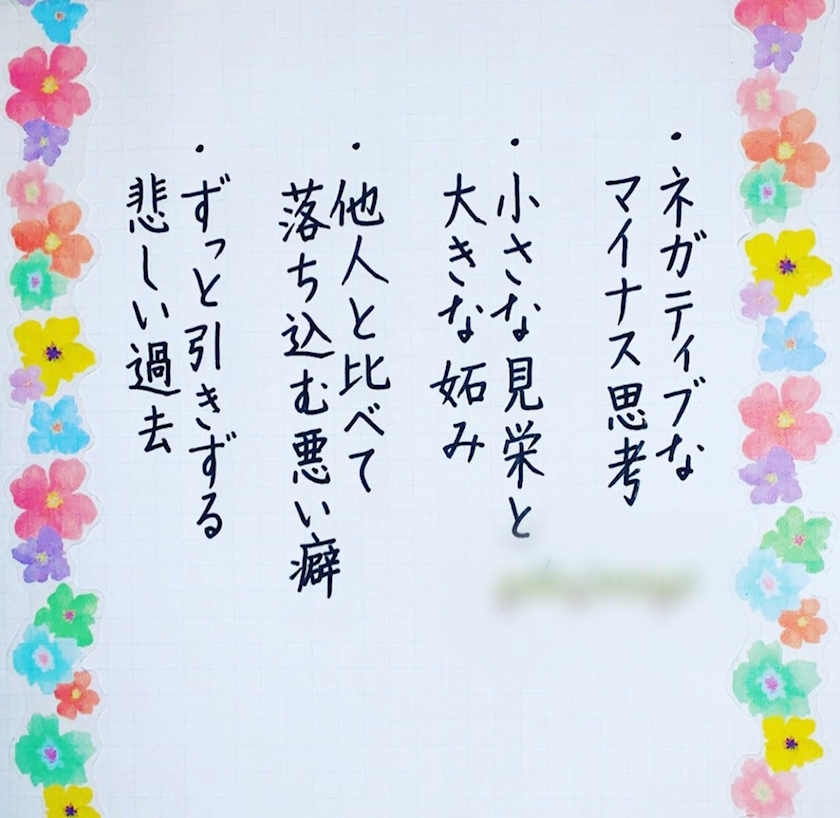 ・ネガティブな
マイナス思考
・小さな見栄と
大きな妬み
・他人と比べて
落ち込む悪い癖
・ずっと引きずる
悲しい過去